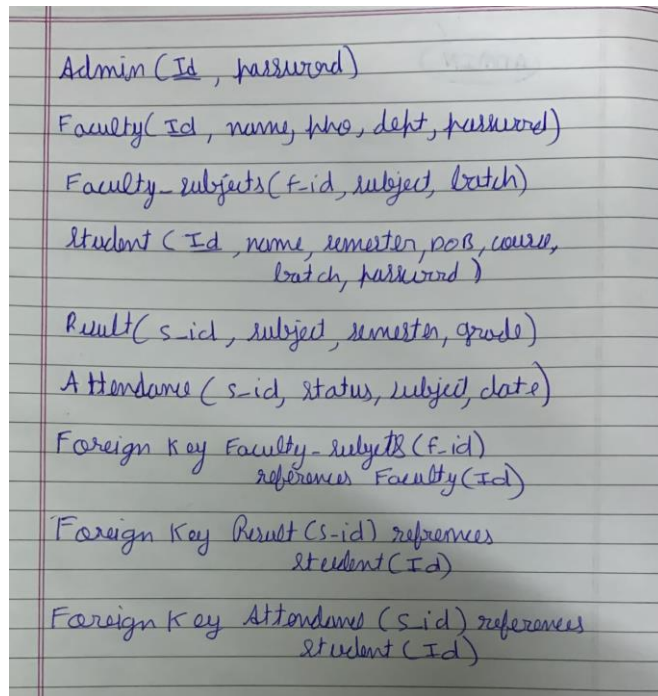 Admin (Id, password)
Faculty( Id, name, pho, dept, password)
Faculty_subjects(f_id, subject, batch)
Student ( Id, name, semester, DOB, course,
batch, password )
Result( s_id, subject, semester, grade)
Attendance ( s_id, status, subject, date)
Foreign Key Faculty_subjects (f_id)
references Faculty(Id)
Foreign Key Result (s_id) refrences
Student (Id)
Foreign Key Attendance (s_id) references
Student (Id)